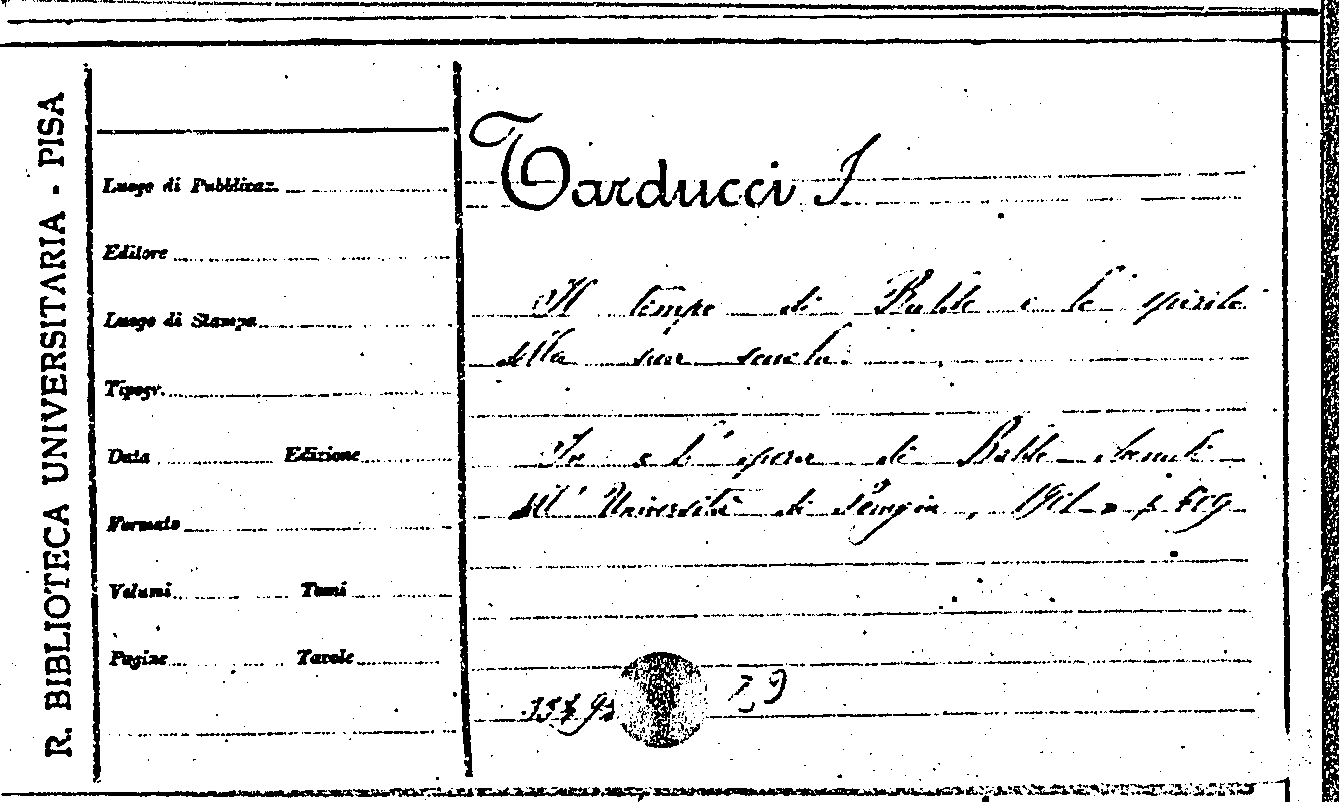 R. BIBLIOTECA UNIVERSITARIA - PISA
Luogo di Pubblicaz.
Editore
Luogo di Stampa
Tipogr.
Data Edizione
Formato
Volumi Tomi
Pagine Tavole
Tarducci
Il tempo di e lo spirito
della sua scuola.
e l'opera di
dell'Università di